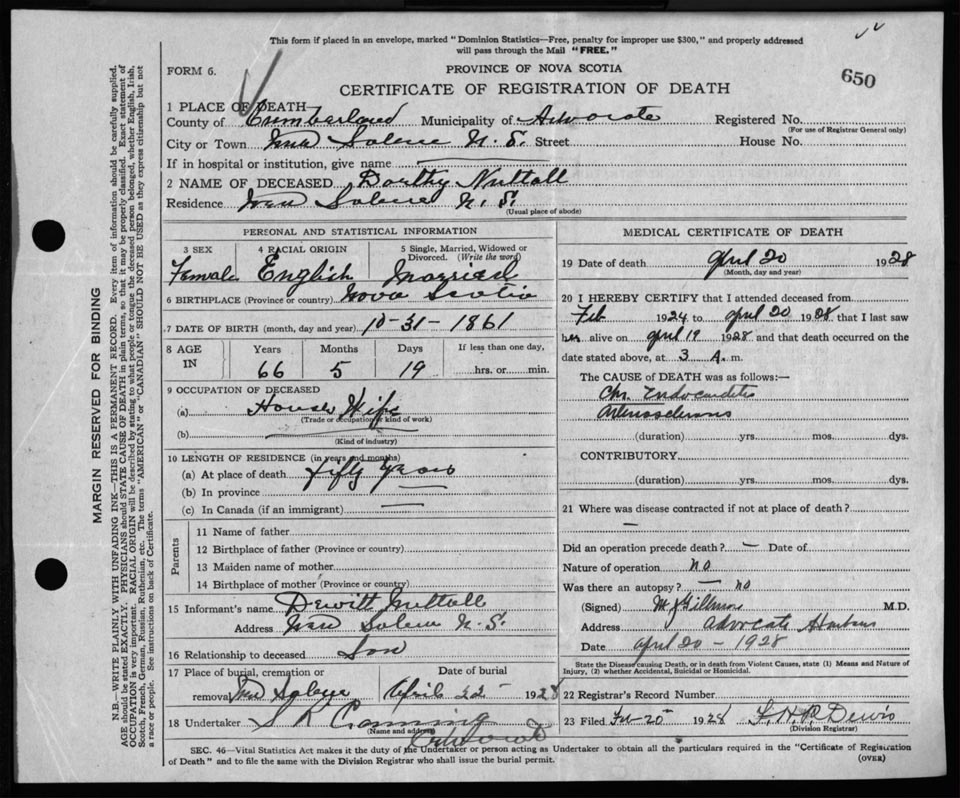 This form if placed in an envelope, marked "Dominion Statistics—Free, penalty for improper use $300," and properly addressed
will pass through the Mail "FREE."
FORM 6.
PROVINCE OF NOVA SCOTIA
650
CERTIFICATE OF REGISTRATION OF DEATH
1 PLACE OF DEATH
County of Cumberland Municipality of Advocate Registered No.
(For use of Registrar General only)
City or Town New Salem N.S. Street House No.
If in hospital or institution, give name
2 NAME OF DECEASED Dorthy Nuttall
Residence New Salem N.S.
(Usual place of abode)
PERSONAL AND STATISTICAL INFORMATION
3 SEX 4 RACIAL ORIGIN 5 Single, Married, Widowed or
Divorced. (Write the word)
Female English Married
6 BIRTHPLACE (Province or country) Nova Scotia
7 DATE OF BIRTH (month, day and year) 10-31-1861
8 AGE IN Years Months Days If less than one day,
66 5 19 hrs. or min.
9 OCCUPATION OF DECEASED
(a) House Wife
(Trade or occupation or kind of work)
(b)
(Kind of industry)
10 LENGTH OF RESIDENCE (in years and months)
(a) At place of death fifty years
(b) In province
(c) In Canada (if an immigrant)
Parents
11 Name of father
12 Birthplace of father (Province or country)
13 Maiden name of mother
14 Birthplace of mother (Province or country)
15 Informant's name Dewitt Nuttall
Address New Salem N.S.
16 Relationship to deceased Son
17 Place of burial, cremation or Date of burial
removal New Salem April 22 - 1928
18 Undertaker S R Canning
(Name and address)
Advocate
MEDICAL CERTIFICATE OF DEATH
19 Date of death April 20 1928
(Month, day and year)
20 I HEREBY CERTIFY that I attended deceased from
Feb 1924 to April 20 1928 that I last saw
her alive on April 19 1928 and that death occurred on the
date stated above, at 3 A. m.
The CAUSE OF DEATH was as follows:—
Chr. Endocarditis
Arteriosclerosis
(duration) yrs. mos. dys.
CONTRIBUTORY
(duration) yrs. mos. dys.
21 Where was disease contracted if not at place of death?
Did an operation precede death? — Date of
Nature of operation no
Was there an autopsy? — no
(Signed) M.D.
Address Advocate Harbour
Date April 20 - 1928
State the Disease causing Death, or in death from Violent Causes, state (1) Means and Nature of
Injury, (2) whether Accidental, Suicidal or Homicidal.
22 Registrar's Record Number
23 Filed 1928
(Division Registrar)
SEC. 46—Vital Statistics Act makes it the duty of the Undertaker or person acting as Undertaker to obtain all the particulars required in the "Certificate of Registration
of Death" and to file the same with the Division Registrar who shall issue the burial permit.
(OVER)
MARGIN RESERVED FOR BINDING
N.B.—WRITE PLAINLY WITH UNFADING INK—THIS IS A PERMANENT RECORD. Every item of information should be carefully supplied.
AGE should be stated EXACTLY. PHYSICIANS should STATE CAUSE OF DEATH in plain terms, so that it may be properly classified. Exact statement of
OCCUPATION is very important. RACIAL ORIGIN will be described by stating to what people or tongue the deceased person belonged, whether English, Irish,
Scotch, French, German, Russian, Ruthenian, etc. The terms "AMERICAN" or "CANADIAN" SHOULD NOT BE USED as they express citizenship but not
a race or people. See instructions on back of Certificate.